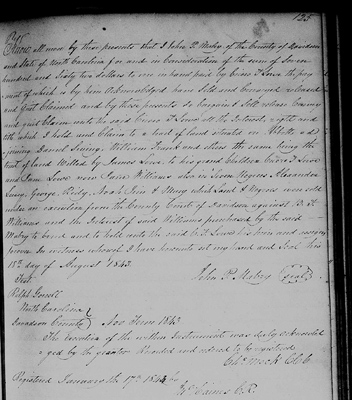 125
Know all men by these presents that I John P. Mabry of the County of Davidson
and State of North Carolina for and in consideration of the sum of Seven
hundred and Sixty two dollars to me in hand paid by Lowe the pay
ment of which is by him Acknowledged have Sold and Conveyed released
and Quit Claimed and by these presents do bargain Sell release Convey
and quit claim unto the said Lowe all the Interest, right and
title which I hold and Claim to a tract of land situated in
joining Daniel William and others the same being the
tract of land Willed by James Lowe to his grand Children Lowe
and Lowe now Williams also in them Negroes Alexander
Lucy, George, Noah & Mary which Land & Negroes were sold
under an execution from the County Court of Davidson against
Williams and the Interest of said Williams purchased by the said
Mabry to have and to hold unto the said Lowe his heirs and assigns
forever In witness whereof I have hereunto set my hand and Seal this
18th day of August 1843.
John P. Mabry (Seal)
Test.
Ralph
North Carolina
Davidson County Nov Term 1843
The execution of the within Instrument was duly acknowled
ged by the grantor Recorded and ordered to be registered
Registered January 17th 1844 by
P.R.